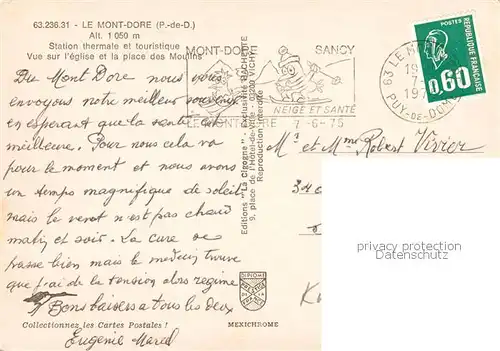 63.236.31 - LE MONT-DORE (P.-de-D.)
Alt. 1 050 m
Station thermale et touristique
Vue sur l'église et la place des Moulins
MONT-DORE SANCY
NEIGE ET SANTÉ
LE MONT-DORE 7-6-75
63 LE MONT
PUY-DE-DOME
POSTES
0,60
RÉPUBLIQUE FRANÇAISE
Du Mont Dore nous vous
envoyons notre meilleur souvenir
en esperant que la santé
meilleure. Pour nous cela va
pour le moment et nous avons
un temps magnifique de soleil
mais le vent n'est pas chaud
matin et soir. La cure se
passe bien mais le medecin trouve
que j'ai de la tension alors regime
Bons baisers a tous les deux
Eugénie Marcel
Collectionnez les Cartes Postales !
Editions "La Cigogne" - Exclusivité HACHETTE
9, place de l'Hôtel-de-Ville - VICHY
Reproduction interdite
DIPLOME
PRESTIGE
FRANCE
MEXICHROME
Mr et Mme Robert Vivier
privacy protection
privacy protection